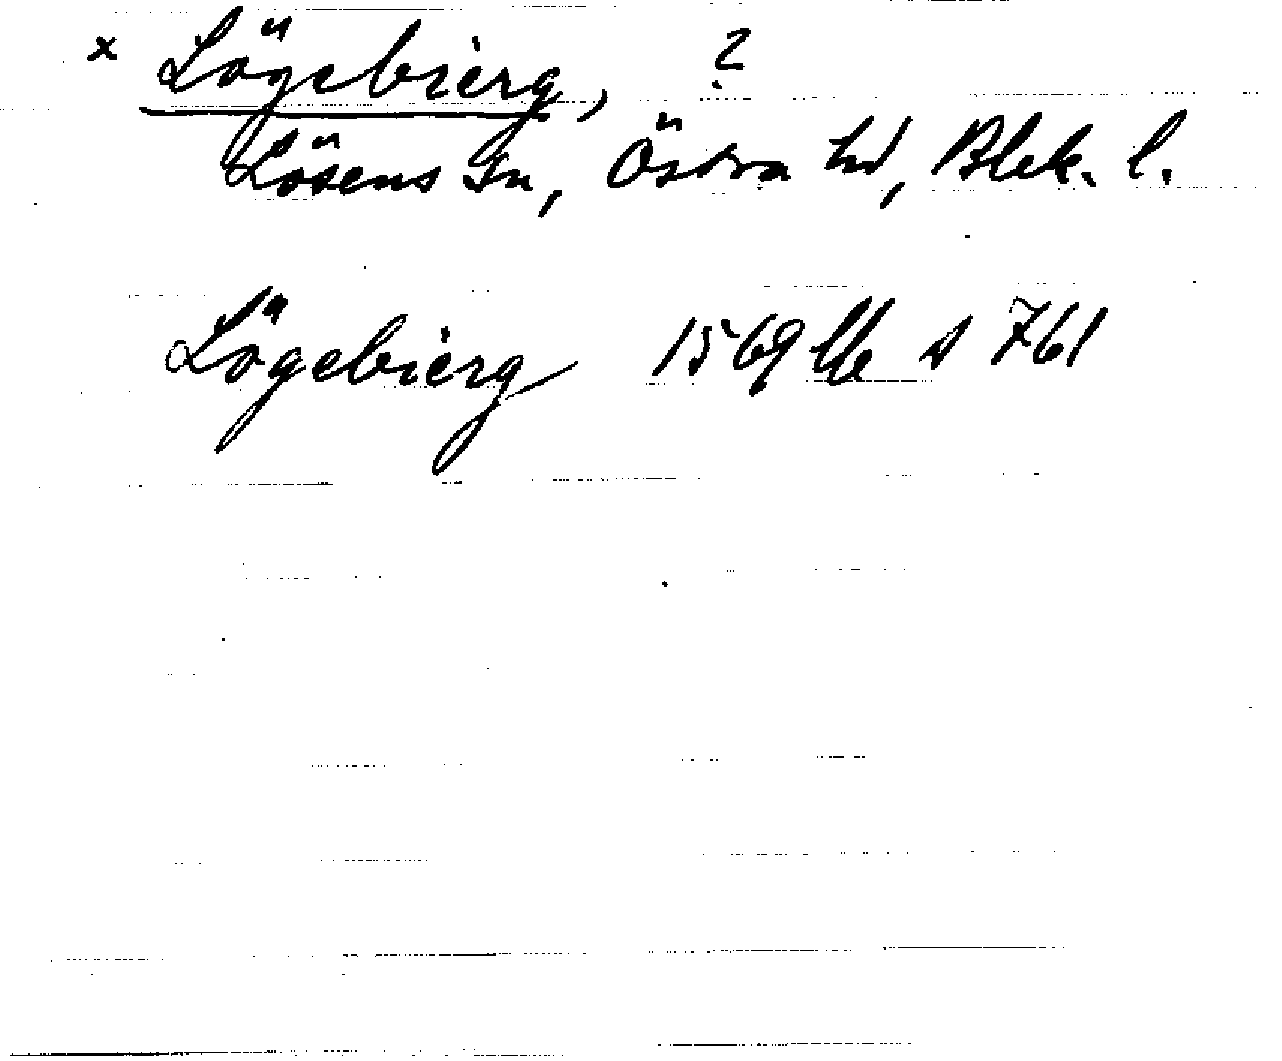 x Lögebierg, ?
Lösens sn, Östra hd, Blek. l.
Lögebierg 1569 llb s 761